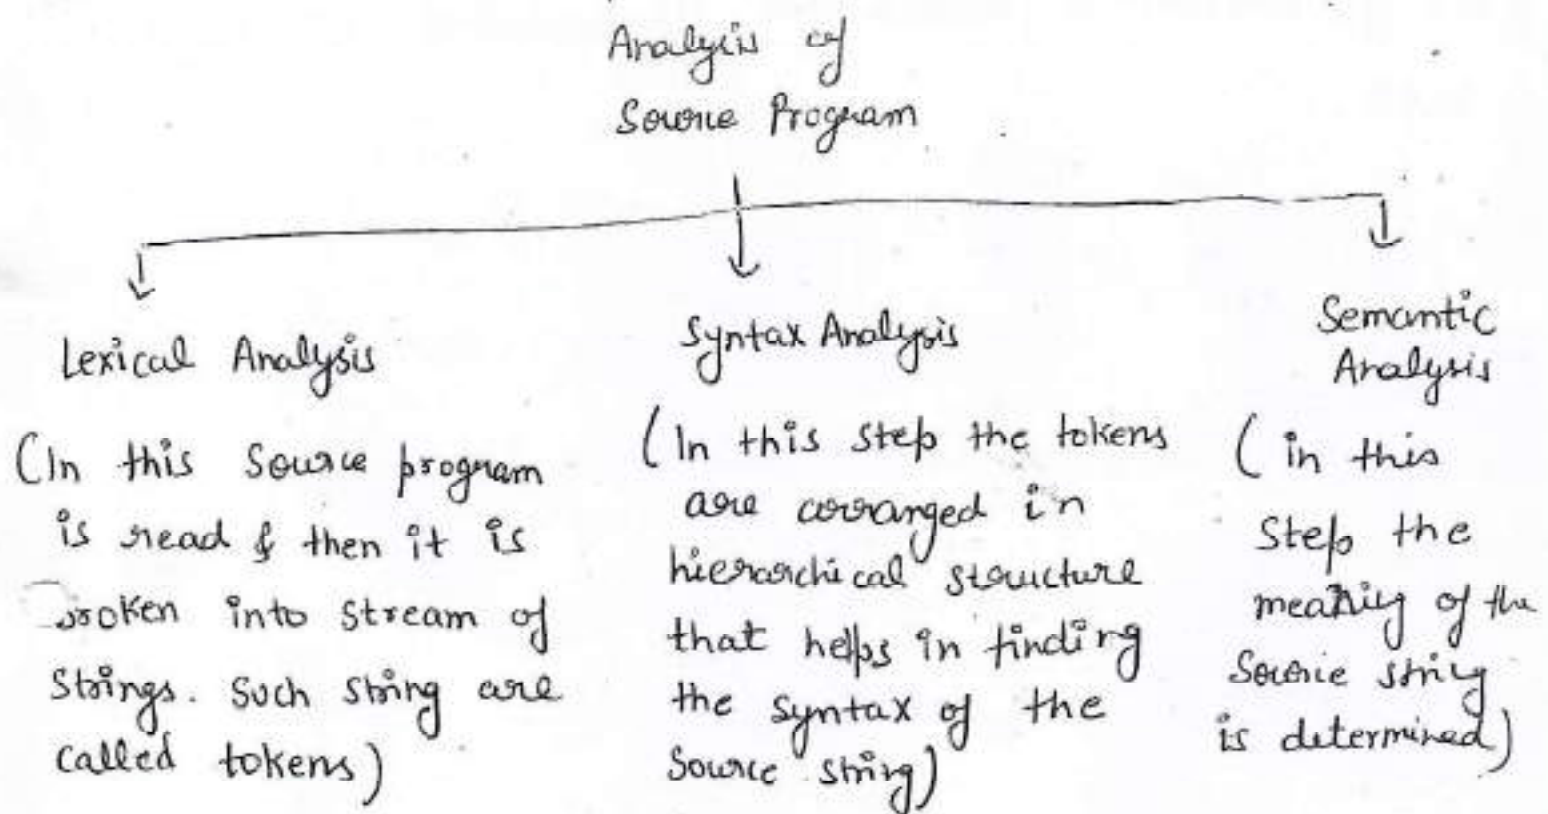 Analysis of
Source Program
Lexical Analysis
(In this Source program
is read & then it is
broken into stream of
strings. Such string are
called tokens)
Syntax Analysis
(In this step the tokens
are arranged in
hierarchical structure
that helps in finding
the syntax of the
Source string)
Semantic
Analysis
(in this
step the
meaning of the
Source string
is determined)